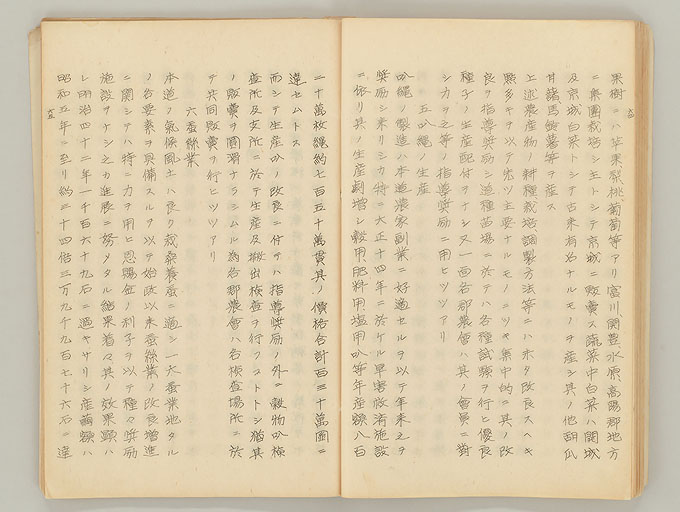 果樹ニハ苹果梨桃葡萄等アリ富川、開豊、水原、高陽郡地方
ニ集團栽培シ主トシテ京城ニ販賣ス蔬菜中白菜ハ開城
及京城白菜トシテ古来有名ナルモノヲ産シ其ノ他胡瓜
甘藷馬鈴薯等ヲ産ス
上述農産物ノ耕種栽培調製方法等ニハ未タ改良スヘキ
點多キヲ以テ先ツ主要ナルモノニツキ集中的ニ其ノ改
良ヲ指導奨励シ道種苗場ニ於テハ各種試験ヲ行ヒ優良
種子ノ生産配付ヲナシ又一面各郡農會ハ其ノ會員ニ對
シカヲ之等ノ指導奨励ニ用ヒツツアリ
五叺縄ノ生産
叺縄ノ製造ハ本道農家副業ニ好適セルヲ以テ年来之ヲ
奨励シ来リシカ特ニ大正十四年ニ於ケル旱害救済施設
ニ依リ其ノ生産劇増シ穀用肥料用塩用叺等年産額八百
二十萬枚縄約七百五十萬貫其ノ價格合計百三十萬圓ニ
達セムトス
而シテ生産叺ノ改良ニ付テハ指導奨励ノ外ニ穀物叺検
査所及支所ニ於テ生産及搬出検査ヲ行フコトトシ猶其
ノ販賣ヲ圓滑ナラシムル為各郡農會ハ各検査場所ニ於
テ共同販賣ヲ行ヒツツアリ
六蚕絲業
本道ノ氣候風土ハ良ク栽桑養蚕ニ適シ一大蚕業地タル
ノ各要素ヲ具備スルヲ以テ始政以来蚕絲業ノ改良増進
ニ関シテハ特ニ力ヲ用ヒ恩賜金ノ利子ヲ以テ種々奨励
施設ヲナシ之カ進展ニ努メタル結果着々其ノ效果顕ハ
レ明治四十二年一千百六十九石ニ過キサリシ産繭額ハ
昭和五年ニ至リ約三十四倍三万九千九百七十六石ニ達